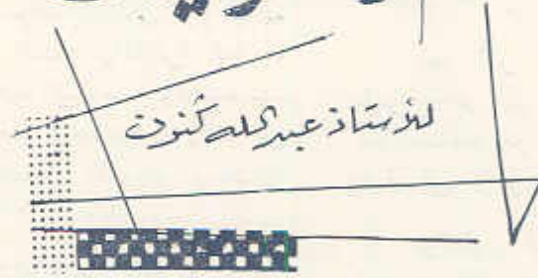 للأستاذ عبد الله گنون